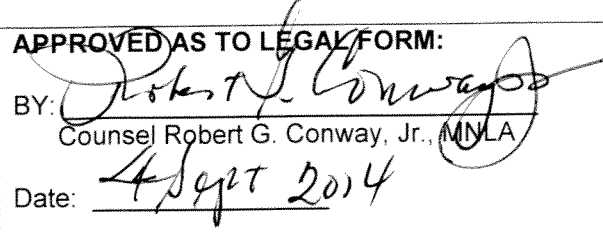 APPROVED AS TO LEGAL FORM:
BY: Robert G. Conway Jr
Counsel Robert G. Conway, Jr., MNLA
Date: 4 Sept 2014